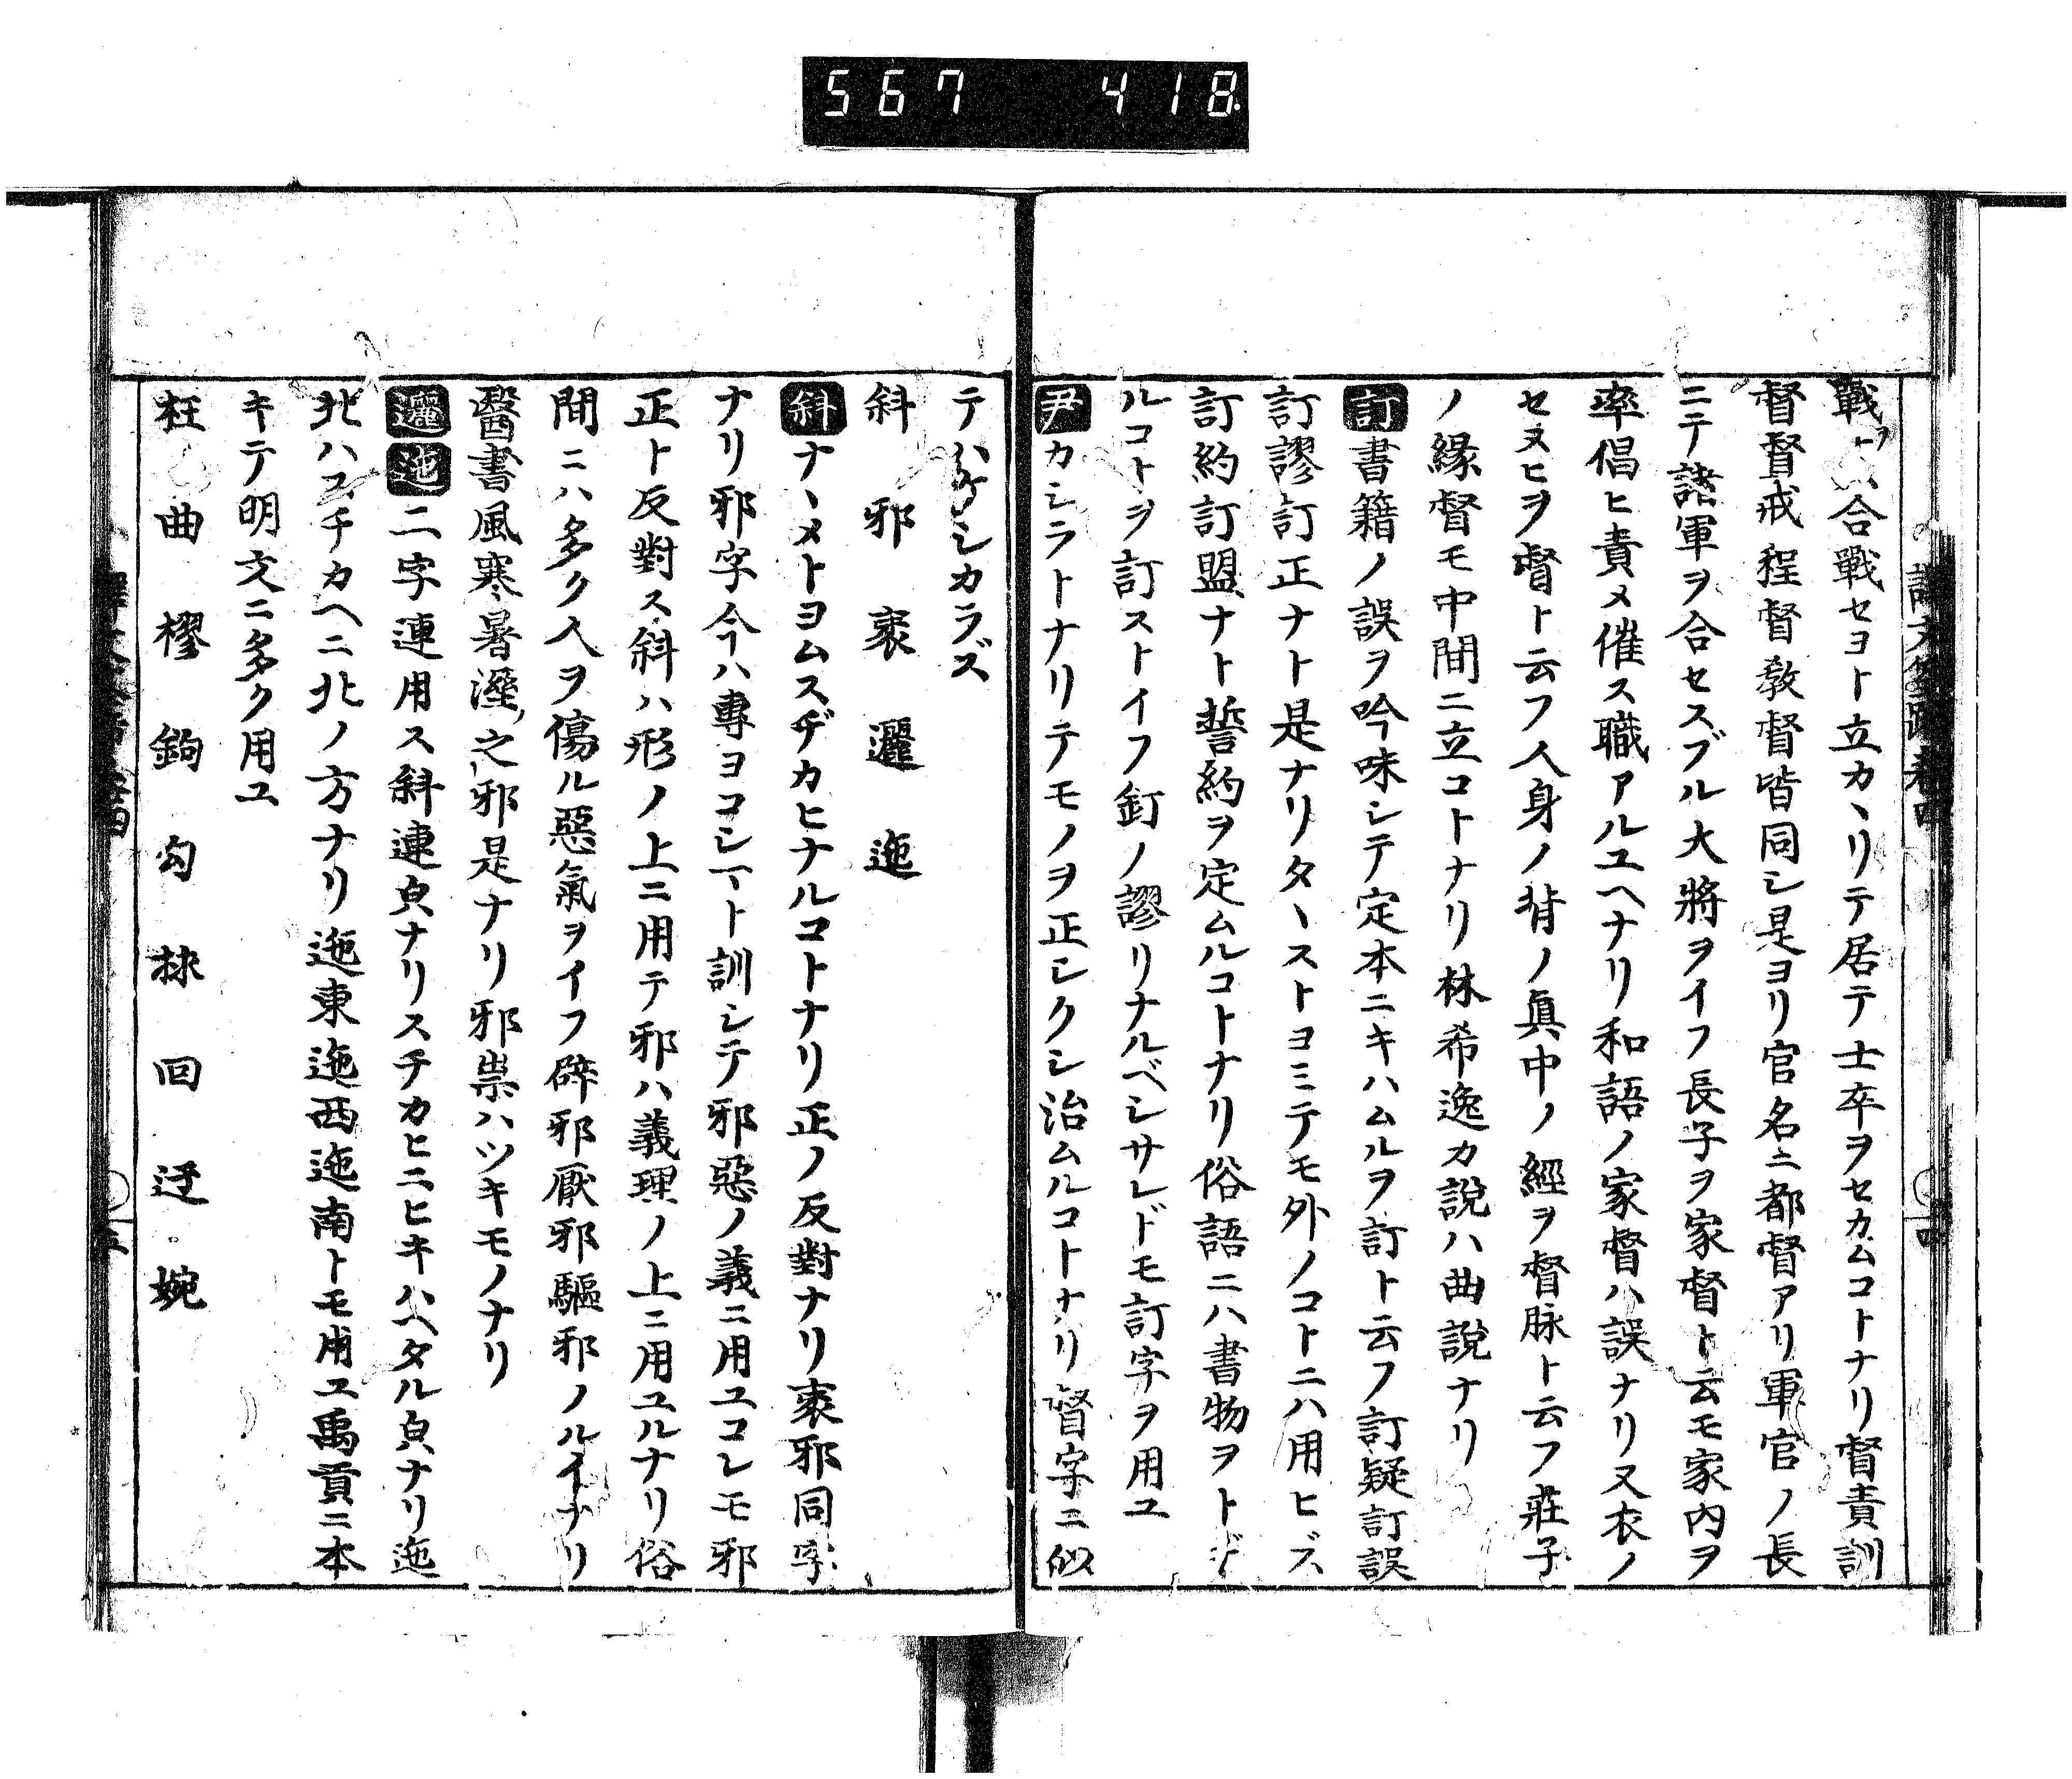 567 418
戰ヲ合戰セヨト立カヽリテ居テ士卒ヲセカムコトナリ督責訓
督督戒程督教督皆同シ是ヨリ官名ニ都督アリ軍官ノ長
ニテ諸軍ヲ合セスブル大將ヲイフ長子ヲ家督ト云モ家内ヲ
率倡ヒ責メ催ス職アルユヘナリ和語ノ家督ハ誤ナリ又衣ノ
セヌヒヲ督ト云フ人身ノ背ノ眞中ノ經ヲ督脉ト云フ莊子
ノ緣督モ中間ニ立コトナリ林希逸カ說ハ曲說ナリ
訂書籍ノ誤ヲ吟味シテ定本ニキハムルヲ訂ト云フ訂疑訂誤
訂謬訂正ナト是ナリタヽストヨミテモ外ノコトニハ用ヒズ
訂約訂盟ナト誓約ヲ定ムルコトナリ俗語ニハ書物ヲトヂ
ルコトヲ訂ストイフ釘ノ謬リナルベシサレドモ訂字ヲ用ユ
尹カシラトナリテモノヲ正シクシ治ムルコトナリ督字ニ似
テハゲシカラズ
斜 邪 衺 邐 迤
斜ナヽメトヨムスヂカヒナルコトナリ正ノ反對ナリ衺邪同字
ナリ邪字今ハ專ヨコシマト訓シテ邪惡ノ義ニ用ユコレモ邪
正ト反對ス斜ハ形ノ上ニ用テ邪ハ義理ノ上ニ用ユルナリ俗
間ニハ多ク人ヲ傷ル惡氣ヲイフ辟邪邪厭邪驅邪ノルイナリ
醫書風寒暑溼之邪是ナリ邪祟ハツキモノナリ
邐迤二字連用ス斜連皃ナリスチカヒニヒキハヘタル皃ナリ迤
北ハコチカヘニ北ノ方ナリ迤東迤西迤南トモ用ユ禹貢ニ本
キテ明文ニ多ク用ユ
枉 曲 樛 鉤 勾 捄 回 迂 婉